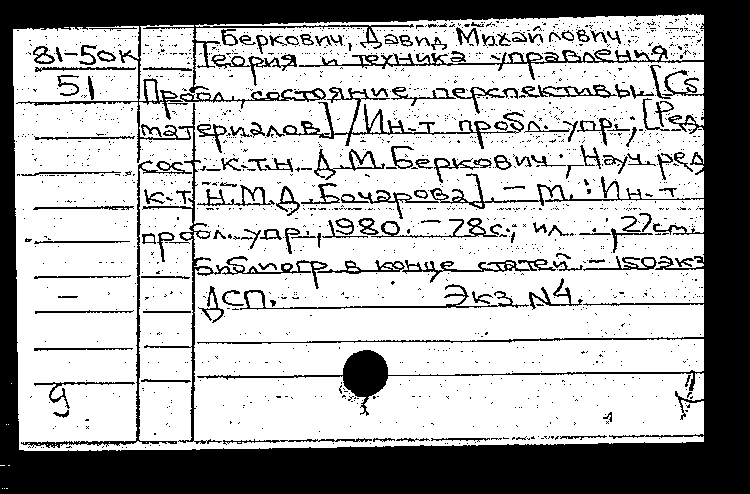 Беркович, Давид Михайлович.
81-50к Теория и техника управления:
51 Пробл., состояние, перспективы. [Сб
материалов] / Ин-т пробл. упр.; [Ред.-
сост. к.т.н. Д.М. Беркович; Науч. ред
к.т.н. М.Д. Бочарова]. - М.: Ин-т
пробл. упр., 1980. - 78с.; ил.; 27см.
Библиогр. в конце статей. - 150экз
— ДСП. Экз N4.
9